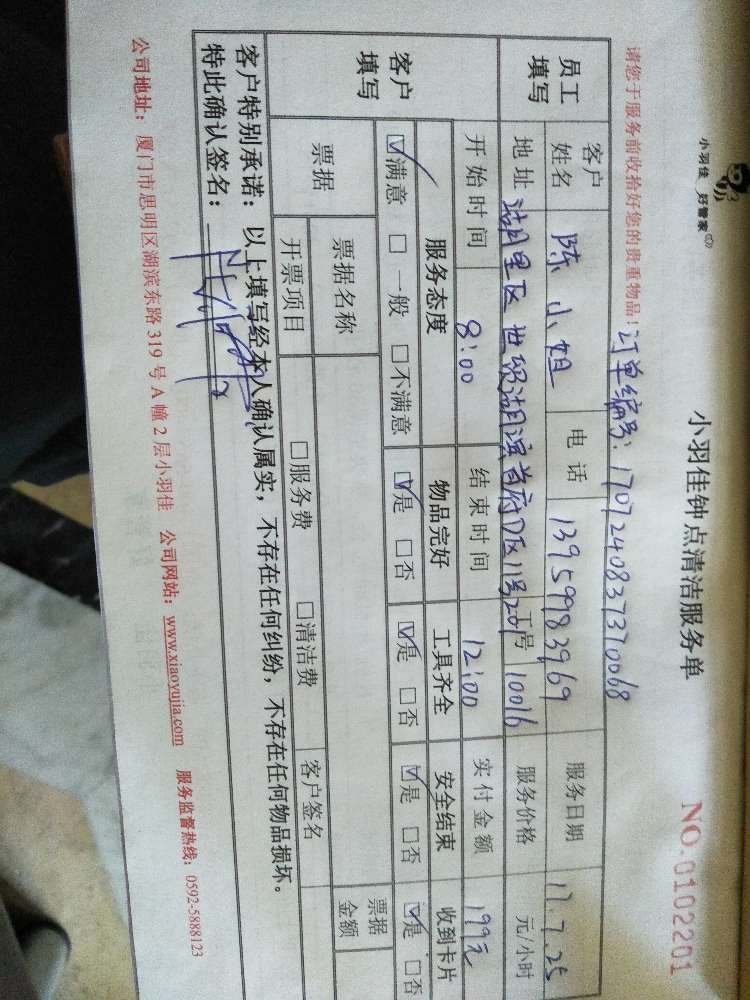 小羽佳 好管家
小羽佳钟点清洁服务单
NO.0102201
请您于服务前收拾好您的贵重物品！
订单编号：17072408373770068
员工填写
客户姓名 陈小姐 电话 13959983969 服务日期 17.7.25
地址 湖里区世贸湖滨首府D区11号201 工号 10016 服务价格 元/小时
开始时间 8:00 结束时间 12:00 实付金额 199元
客户填写
服务态度 物品完好 工具齐全 安全结束 收到卡片
☑满意 □一般 □不满意 ☑是 □否 ☑是 □否 ☑是 □否 ☑是 □否
票据 票据名称 票据金额
开票项目 □服务费 □清洁费 客户签名
客户特别承诺：以上填写经本人确认属实，不存在任何纠纷，不存在任何物品损坏。
特此确认签名：
公司地址：厦门市思明区湖滨东路319号A幢2层小羽佳 公司网站：www.xiaoyujia.com 服务监督热线：0592-5888123